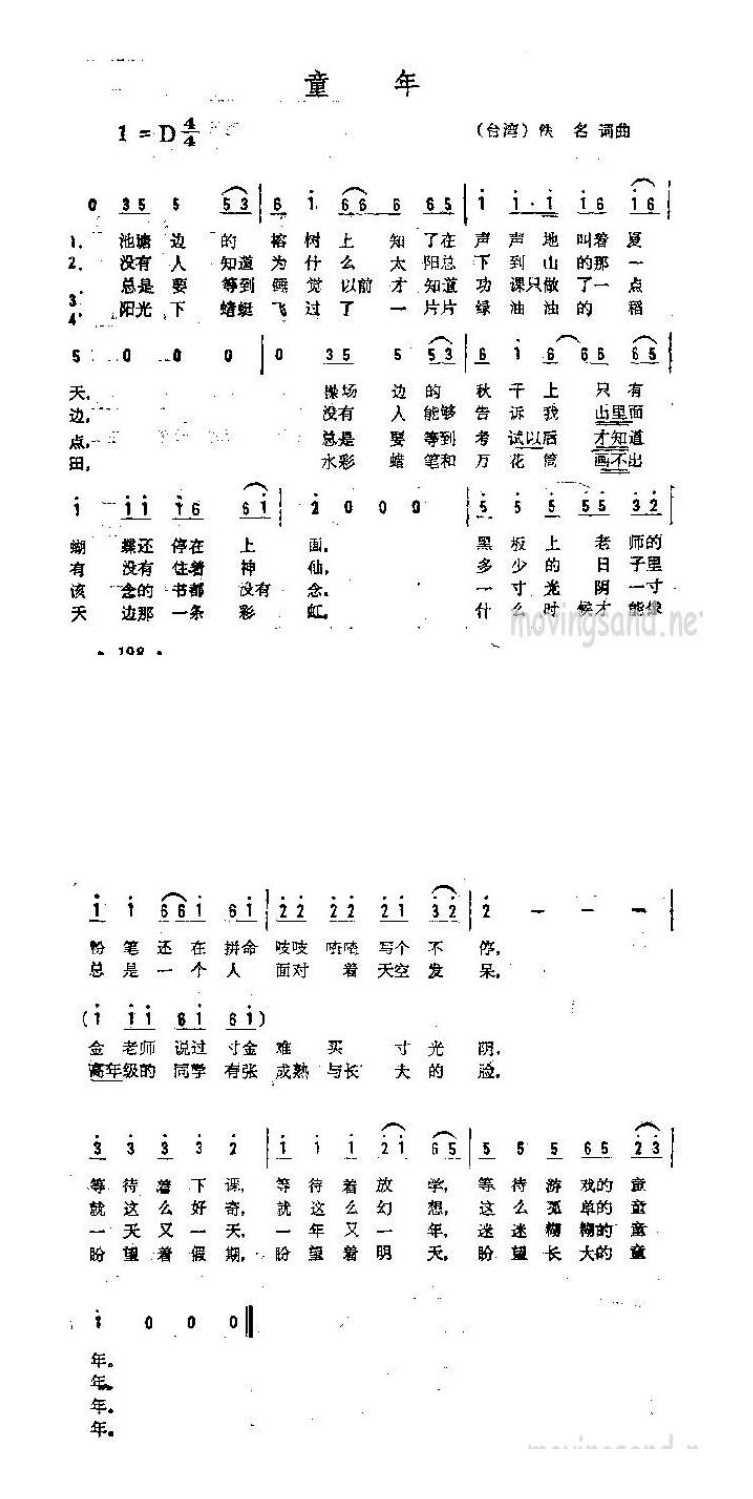 童 年
1=D 4/4 （台湾）佚 名 词曲
0 35 5 53 | 6 1 66 6 65 | 1 1·1 16 16 |
1. 池塘边的榕树上知了在声声地叫着夏
2. 没有人知道为什么太阳总下到山的那一
3. 总是要等到睡觉以前才知道功课只做了一点
4. 阳光下蜻蜓飞过了一片片绿油油的稻
5 0 0 0 | 0 35 5 53 | 6 1 66 65 |
天， 操场边的秋千上只有
边， 没有人能够告诉我山里面
点， 总是要等到考试以后才知道
田， 水彩蜡笔和万花筒画不出
1 11 16 61 | 2 0 0 0 | 5 5 5 55 32 |
蝴蝶还停在上面。 黑板上老师的
有没有住着神仙。 多少的日子里
该念的书都没有念。 一寸光阴一寸
天边那一条彩虹。 什么时候才能像
movingsand.ne
• 198 •
1 1 661 61 | 22 22 21 32 | 2 — — — |
粉笔还在拼命吱吱喳喳写个不停，
总是一个人面对着天空发呆，
(1 11 61 61)
金老师说过寸金难买寸光阴，
高年级的同学有张成熟与长大的脸，
3 3 3 3 2 | 1 1 1 21 65 | 5 5 5 65 23 |
等待着下课，等待着放学，等待游戏的童
就这么好奇，就这么幻想，这么孤单的童
一天又一天，一年又一年，迷迷糊糊的童
盼望着假期，盼望着明天，盼望长大的童
1 0 0 0 ‖
年。
年。
年。
年。